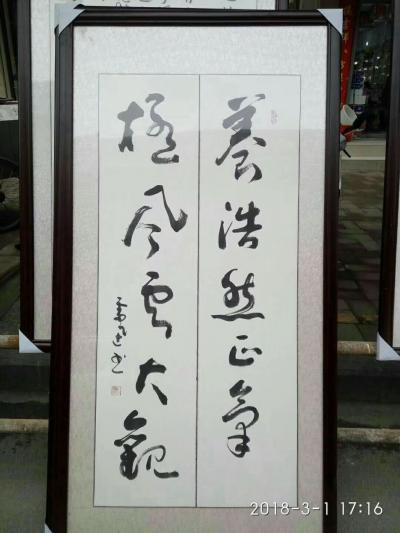 養浩然正氣
極風雲大觀
2018-3-1 17:16